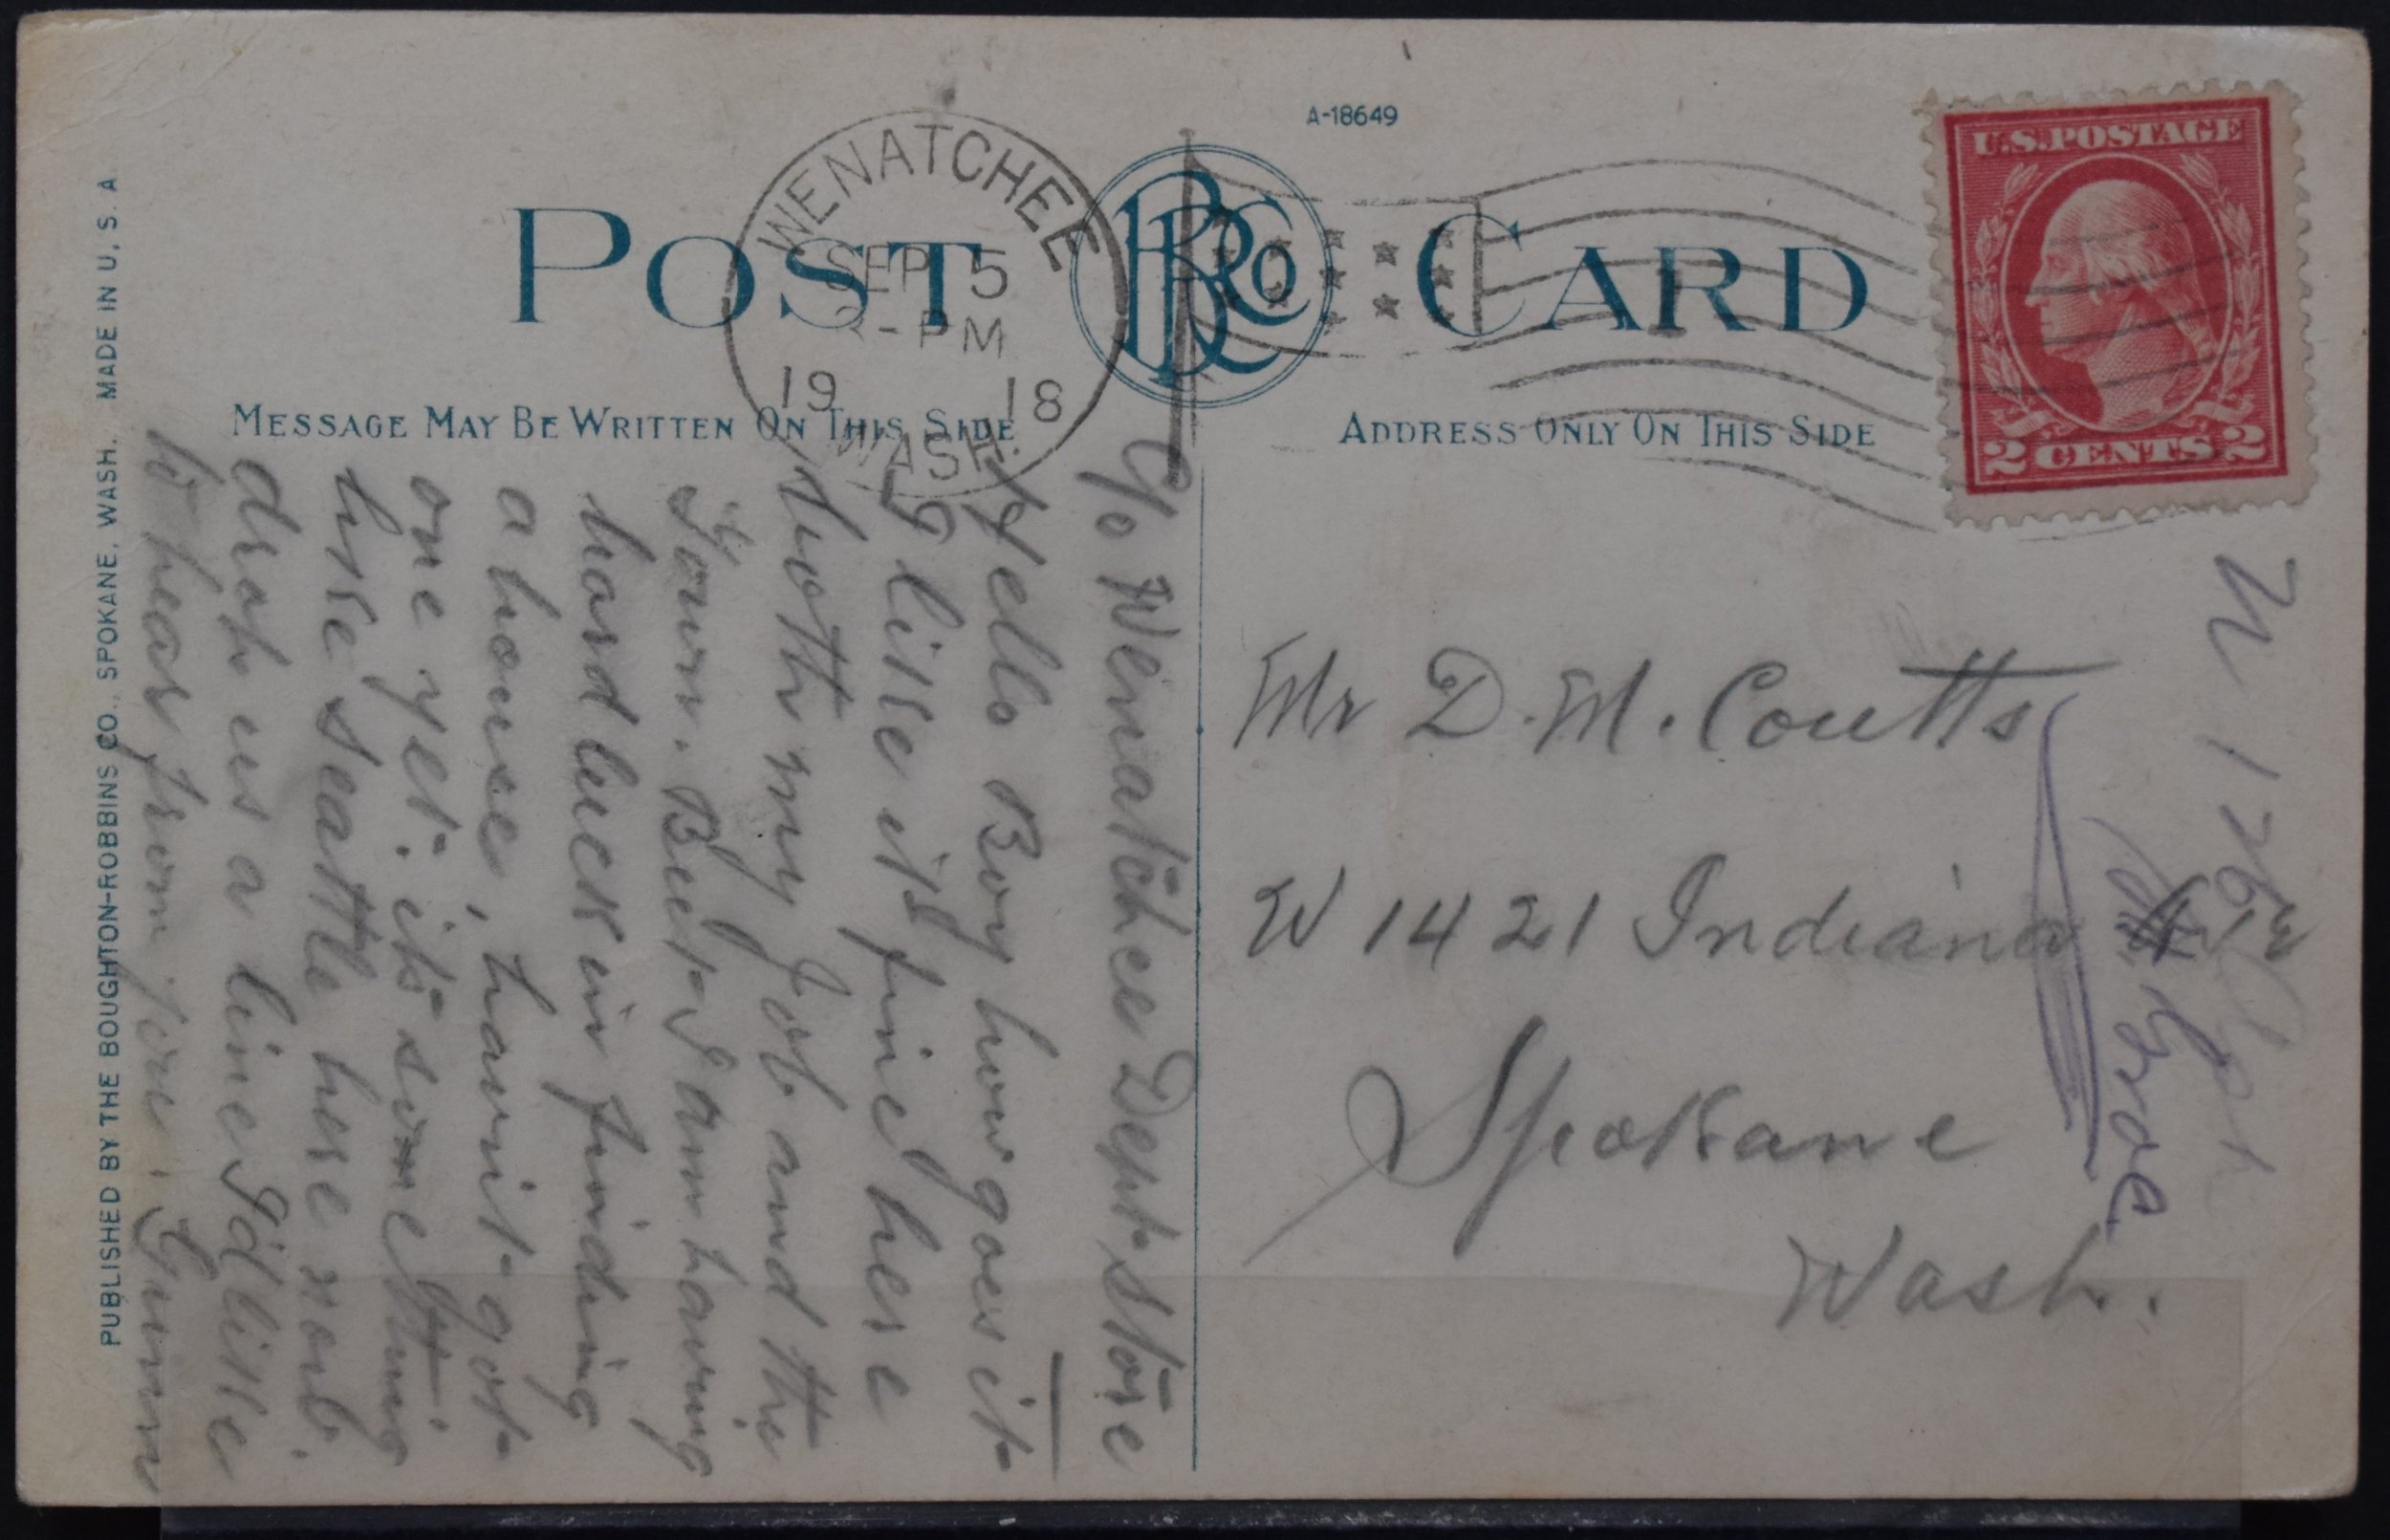 A-18649
POST CARD
BRCo
WENATCHEE
SEP 5
3-PM
19 18
WASH.
U.S. POSTAGE
2 CENTS 2
MESSAGE MAY BE WRITTEN ON THIS SIDE
ADDRESS ONLY ON THIS SIDE
PUBLISHED BY THE BOUGHTON-ROBBINS CO., SPOKANE, WASH. MADE IN U. S. A
c/o Wenatchee Dept Store
Hello Boy how goes it
I like it fine here
both my Job and the
Town. But I am having
hard luck in finding
a house, havint got
one yet. its some thing
like seattle here now.
drop us a line Id like
to hear from you.
Mr D. M. Coutts
W 1421 Indiana
Spokane
Wash.